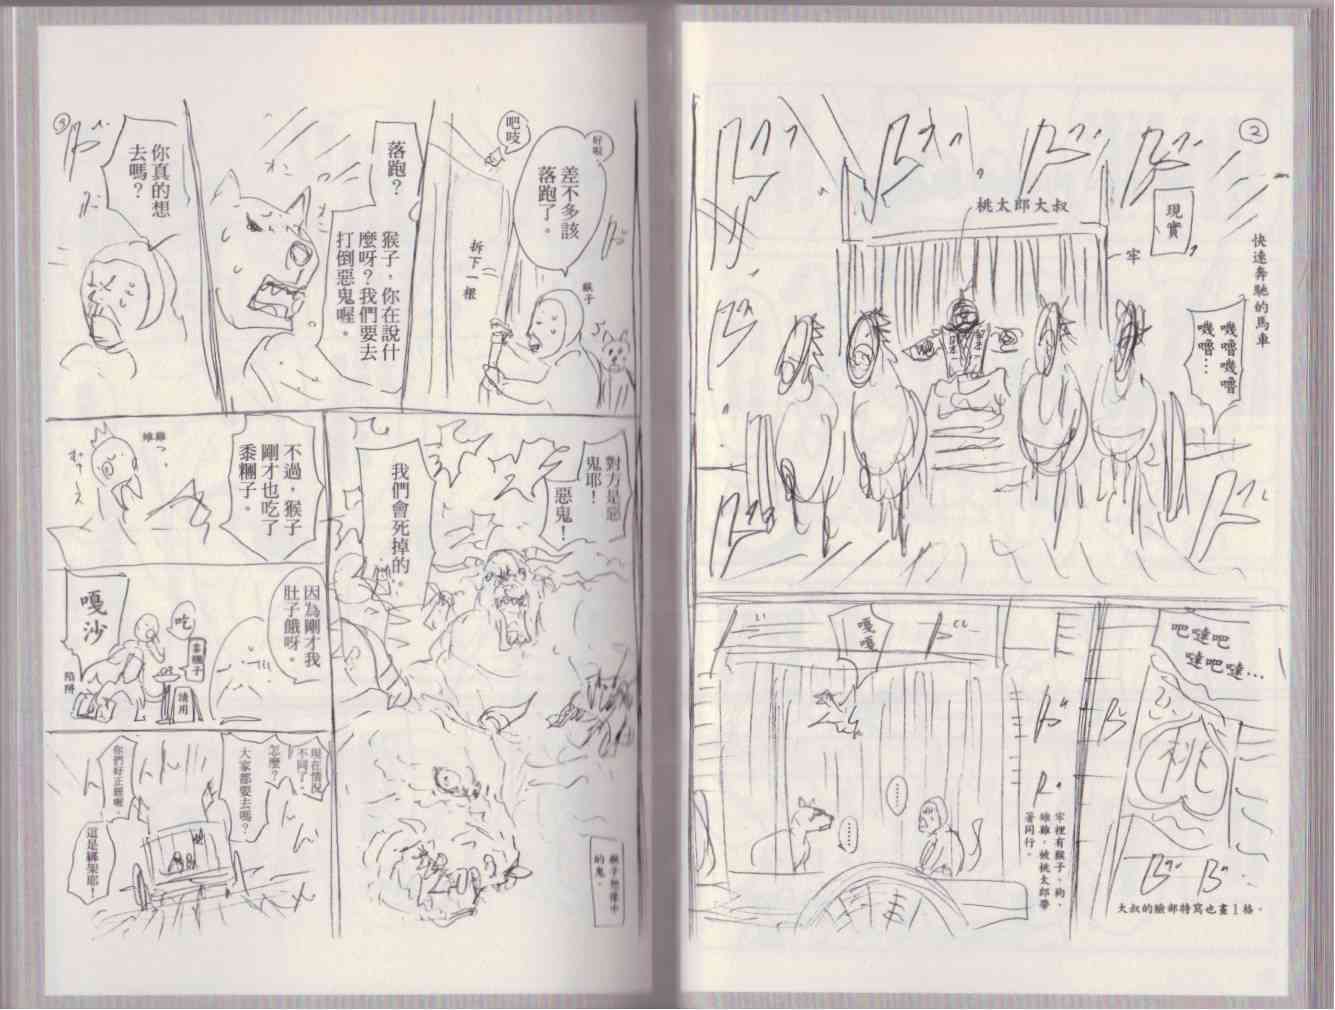 ②
現實
桃太郎大叔
牢
快速奔馳的馬車
嘰嚕嘰嚕
嘰嚕…
吧噠吧
噠吧噠…
桃
大叔的臉部特寫也畫1格。
嘎
嘎
……
……
牢裡有猴子、狗、
雉雞，被桃太郎帶
著同行。
③
好啦
差不多該
落跑了。
吧吱
拆下一根
猴子
落跑？
猴子，你在說什
麼呀？我們要去
打倒惡鬼喔。
你真的想
去嗎？
對方是惡
鬼耶！
惡鬼！
我們會死掉的。
猴子想像中
的鬼。
不過，猴子
剛才也吃了
黍糰子。
雉雞
因為剛才我
肚子餓呀。
吃
黍糰子
請用
嘎沙
陷阱
現在情況
不同了。
怎麼？
大家都要去嗎？
你們好正經喔。
這是綁架耶！